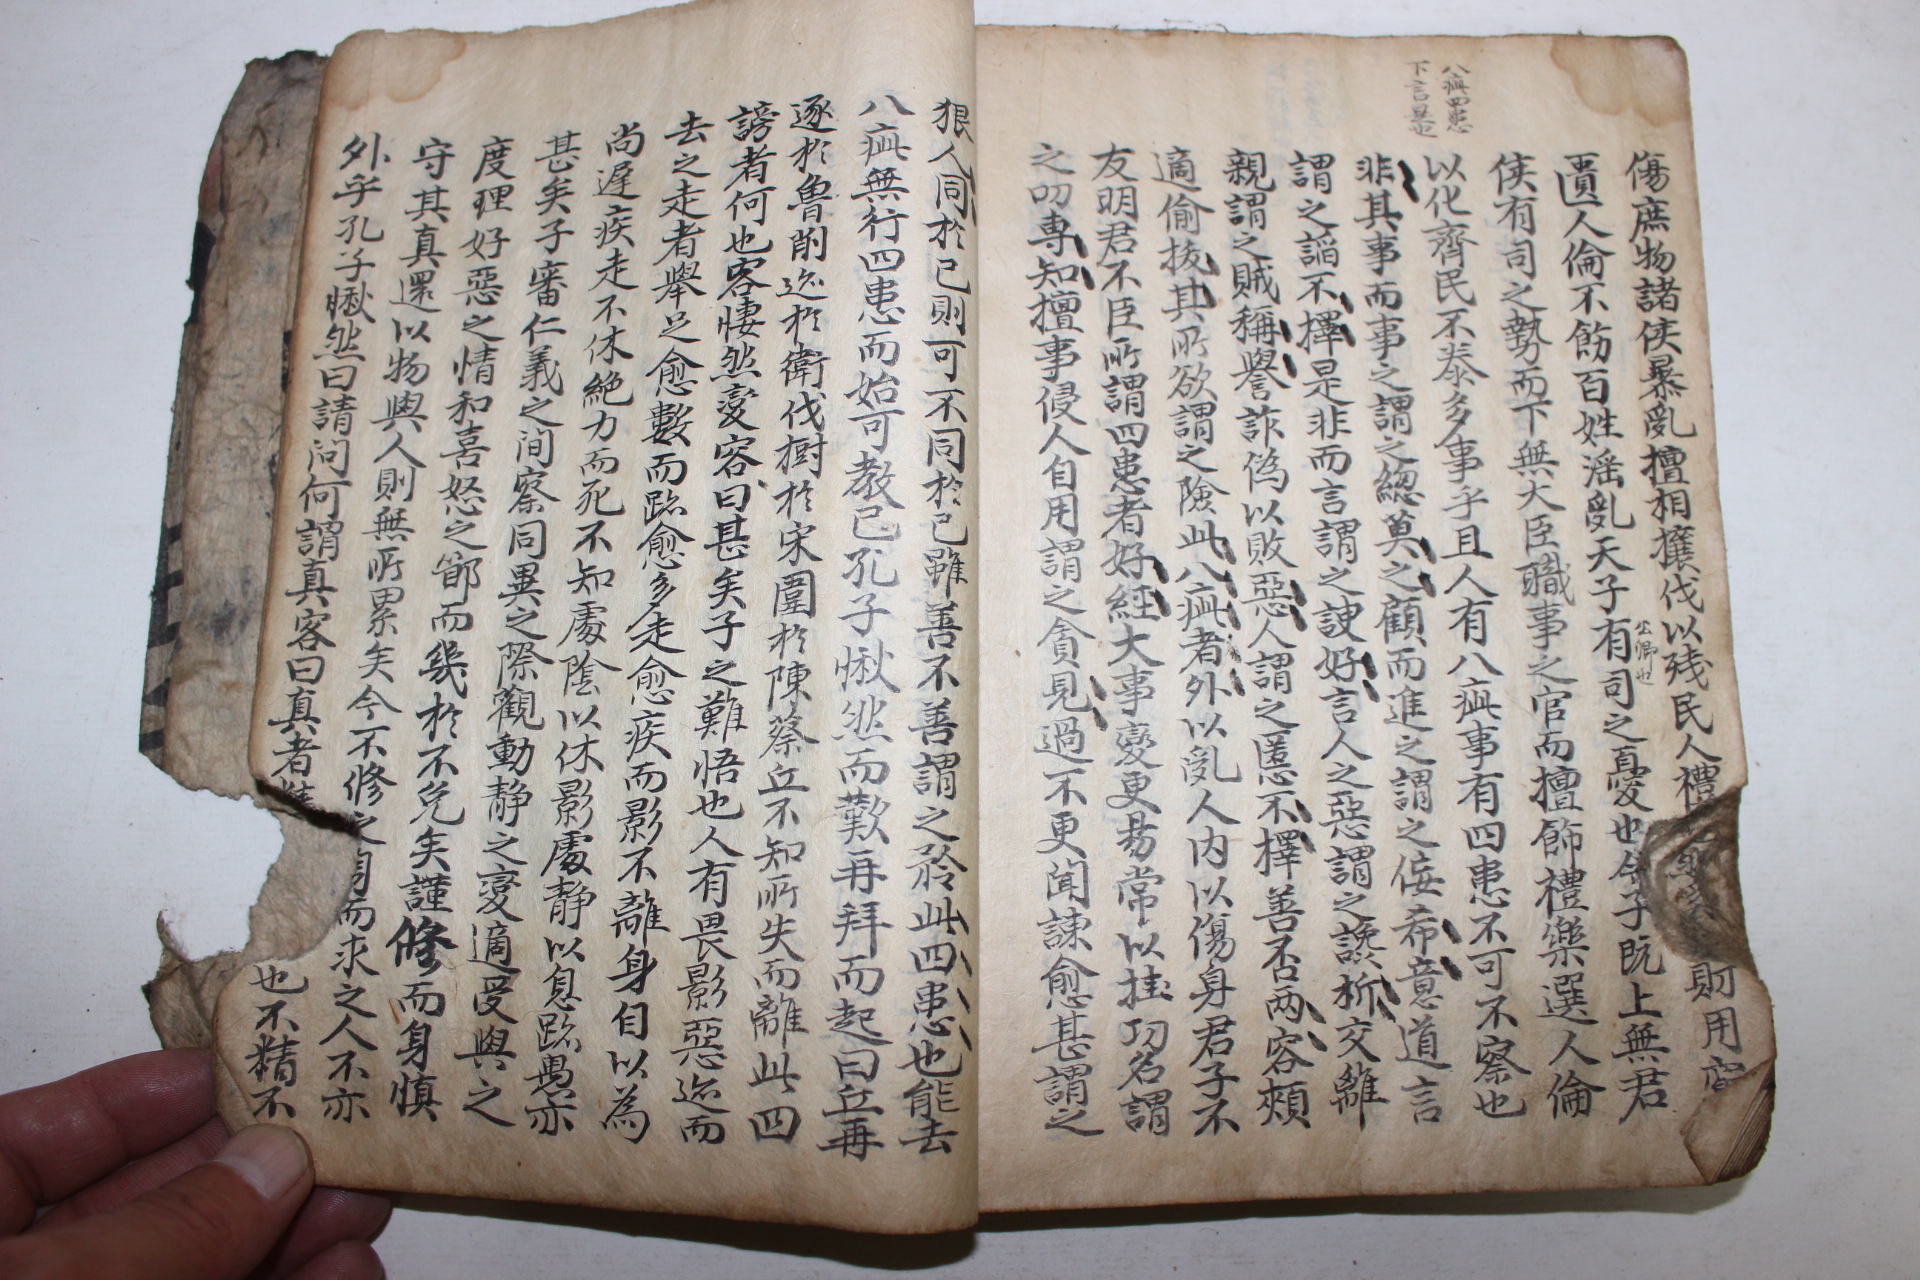 八疵四患
下言是也
傷庶物諸侯暴亂擅相攘伐以殘民人禮 財用窮
匱人倫不飭百姓淫亂天子有司之憂也今子旣上無君
公卿也
侯有司之勢而下無大臣職事之官而擅飾禮樂選人倫
以化齊民不泰多事乎且人有八疵事有四患不可不察也
非其事而事之謂之總莫之顧而進之謂之佞希意道言
謂之謟不擇是非而言謂之諛好言人之惡謂之讒析交離
親謂之賊稱譽詐偽以敗惡人謂之慝不擇善否兩容頰
適偷拔其所欲謂之險此八疵者外以亂人內以傷身君子不
友明君不臣所謂四患者好經大事變更易常以挂功名謂
之叨專知擅事侵人自用謂之貪見過不更聞諫愈甚謂之
狠人同於己則可不同於己雖善不善謂之矜此四患也能去
八疵無行四患而始可教已孔子愀然而歎再拜而起曰丘再
逐於魯削迹於衛伐樹於宋圍於陳蔡丘不知所失而離此四
謗者何也客悽然變容曰甚矣子之難悟也人有畏影惡迹而
去之走者舉足愈數而跡愈多走愈疾而影不離身自以為
尚遲疾走不休絕力而死不知處陰以休影處靜以息跡愚亦
甚矣子審仁義之間察同異之際觀動靜之變適受與之
度理好惡之情和喜怒之節而幾於不免矣謹修而身慎
守其真還以物與人則無所累矣今不修之 而求之人不亦
外乎孔子愀然曰請問何謂真客曰真者精 也不精不